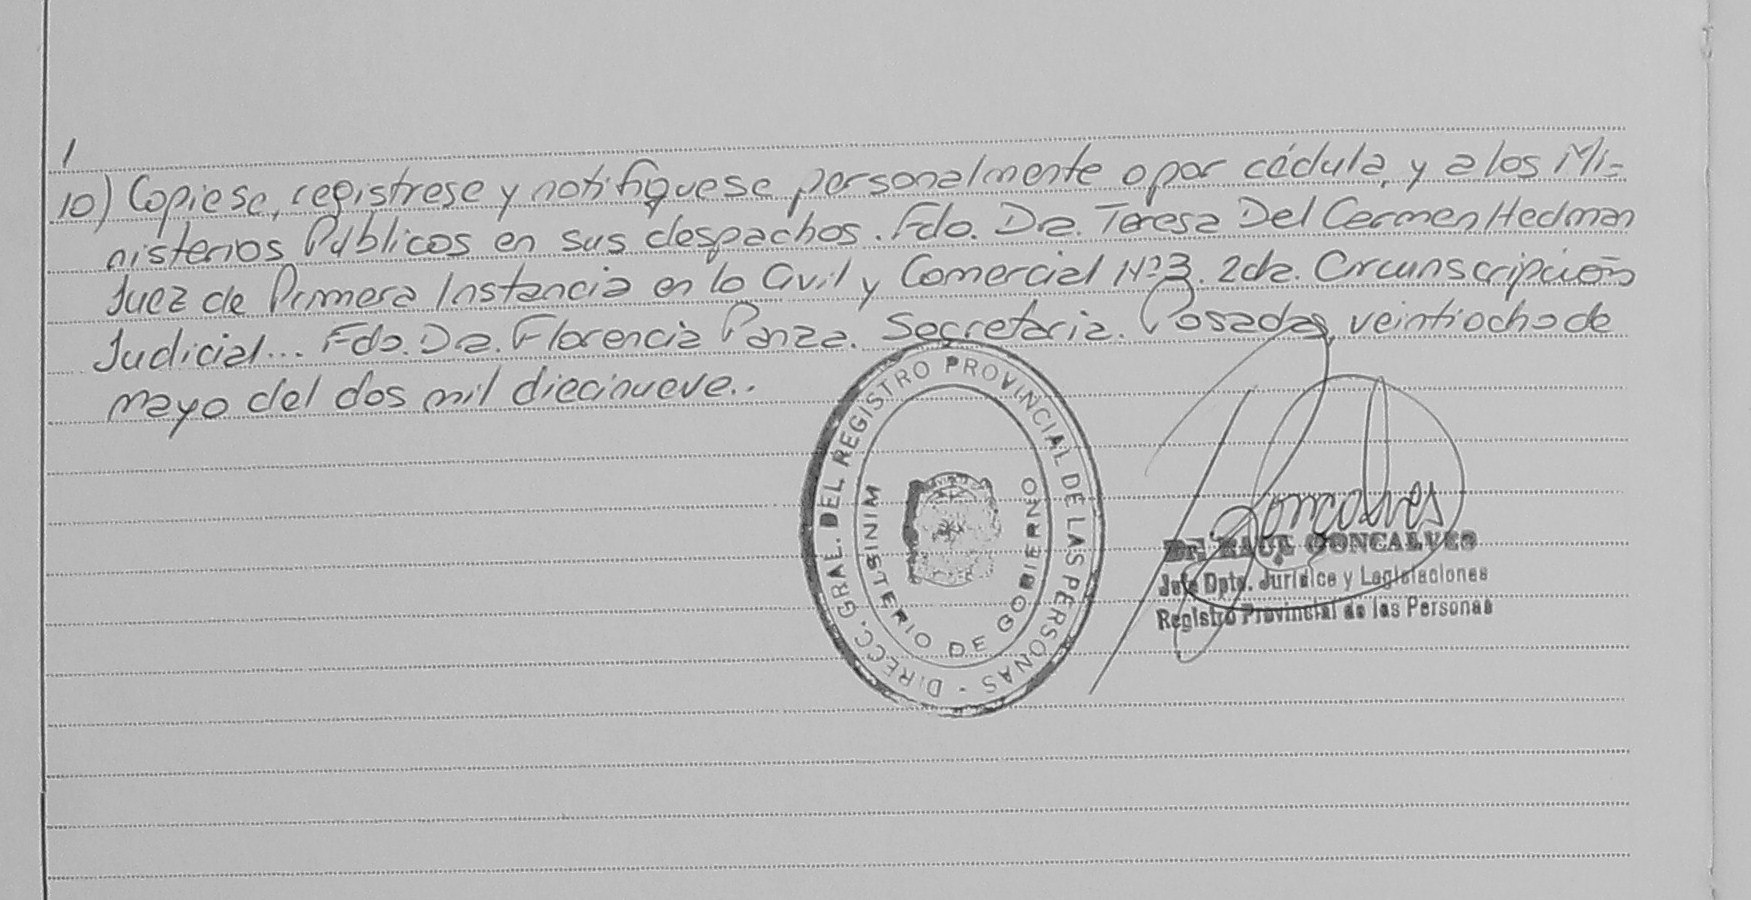 10) Copiese, registrese y notifiquese personalmente o por cédula, y a los Mi-
nisterios Públicos en sus despachos. Fdo. Dra. Teresa Del Carmen Hedman
Juez de Primera Instancia en lo Civil y Comercial Nº3. 2da. Circunscripción
Judicial... Fdo. Dra. Florencia Panza. Secretaria. Posadas, veintiocho de
mayo del dos mil diecinueve..
DIRECC. GRAL. DEL REGISTRO PROVINCIAL DE LAS PERSONAS -
MINISTERIO DE GOBIERNO
Goncalves
Dr. RAUL GONCALVES
Jefe Dpto. Jurídico y Legislaciones
Registro Provincial de las Personas